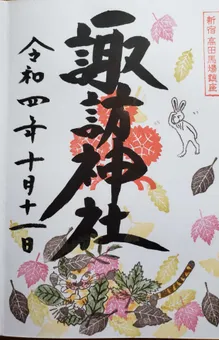 新宿 高田馬場鎮座
諏訪神社
令和四年十月十一日